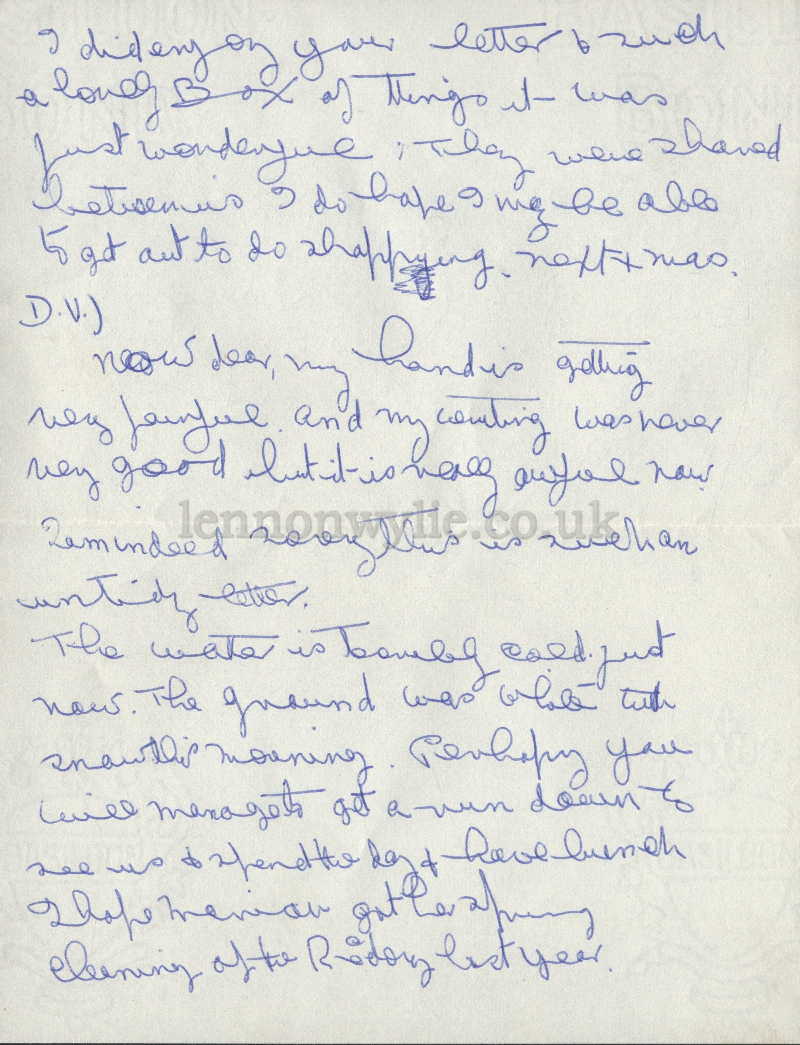 I did enjoy your letter & such
a lovely Box of things it was
just wonderful; They were shared
between us I do hope I may be able
to get out to do shapping. next Xmas.
D.V.)
now dear, my hand is getting
very painful. and my writing was never
very good but it is really awful now
lennonwylie.co.uk
indeed sorry this is such an
untidy letter.
The water is terribly cold just
now. The ground was white with
snow this morning. Perhaps you
will manage to get a run down to
see us & spend the day & have lunch
I hope got her spring
cleaning of the last year.